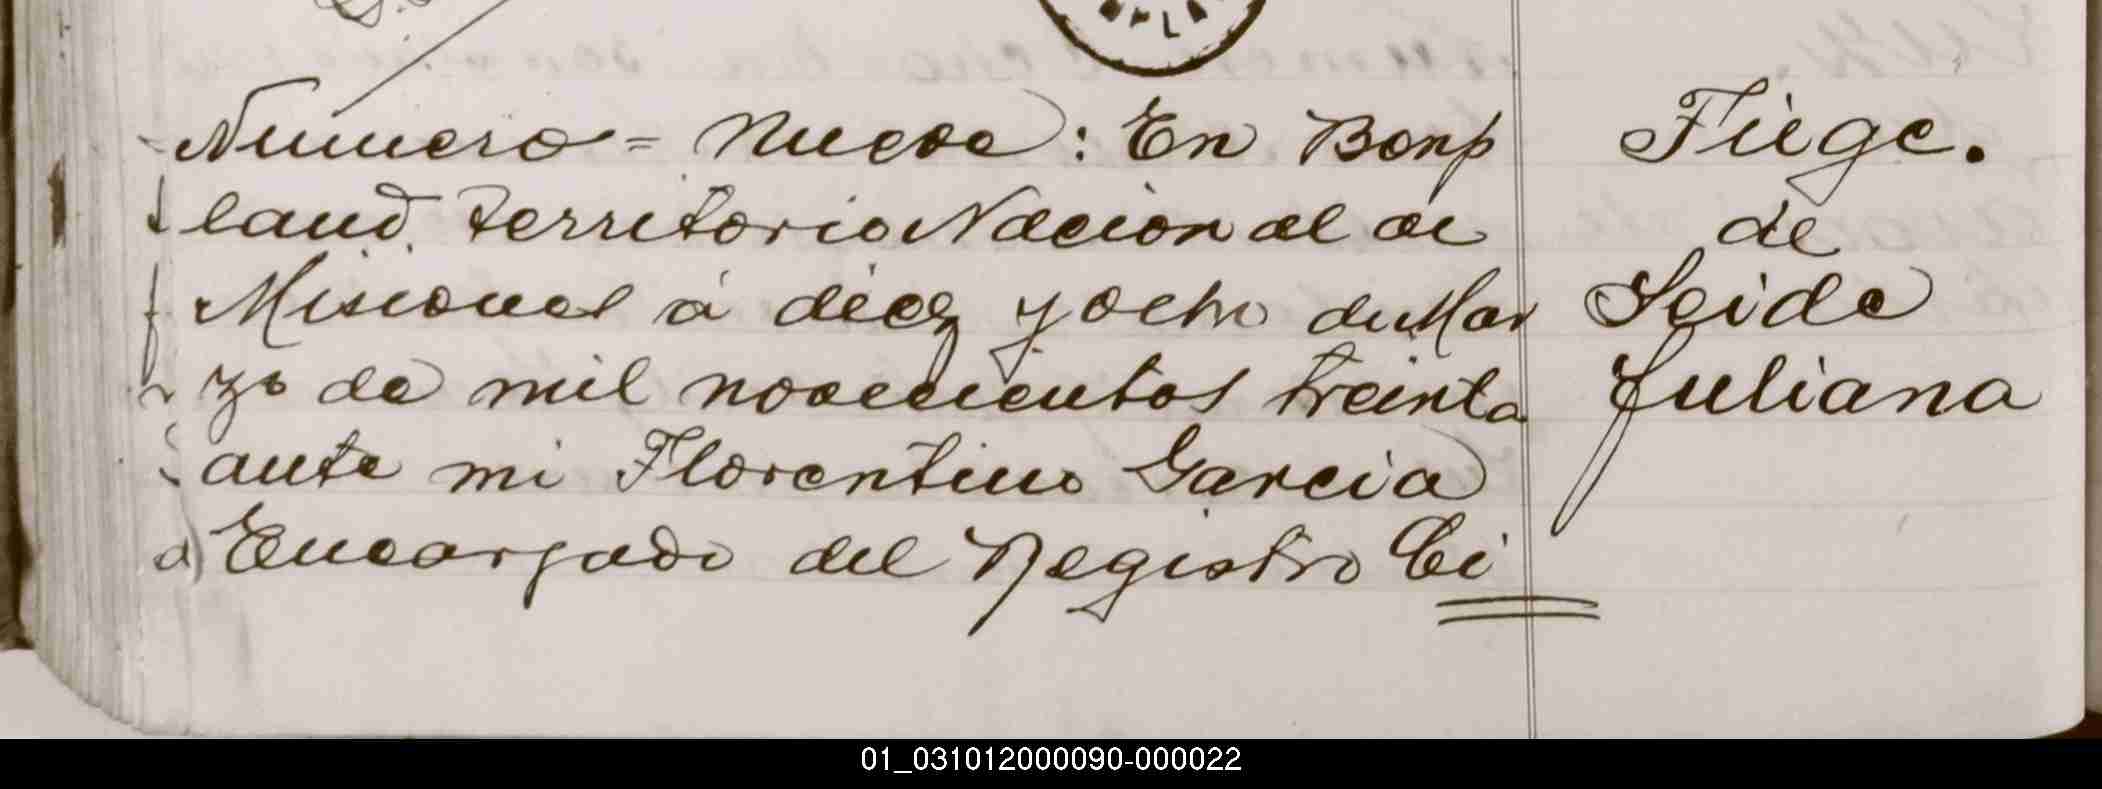 Numero = Nueve: En Bonp
land, Territorio Nacional de
Misiones á diez y ocho de Mar
zo de mil novecientos treinta
ante mi Florentino Garcia
Encargado del Registro Ci
Fiege.
de
Seide
Juliana
01_031012000090-000022